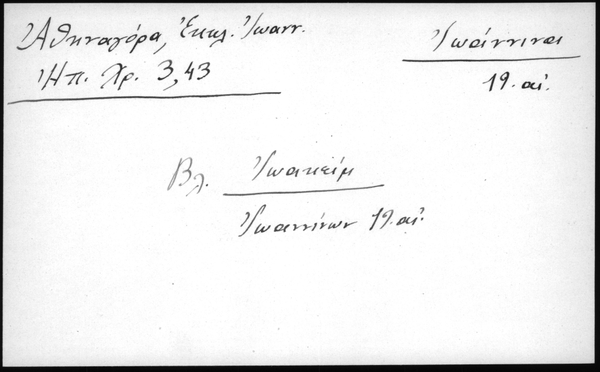 Ἀθηναγόρα, Ἐκκλ. Ἰωανν.
Ἠπ. Χρ. 3,43
Ἰωάννινα
19. αἰ.
Βλ. Ἰωακείμ
Ἰωαννίνων 19. αἰ.